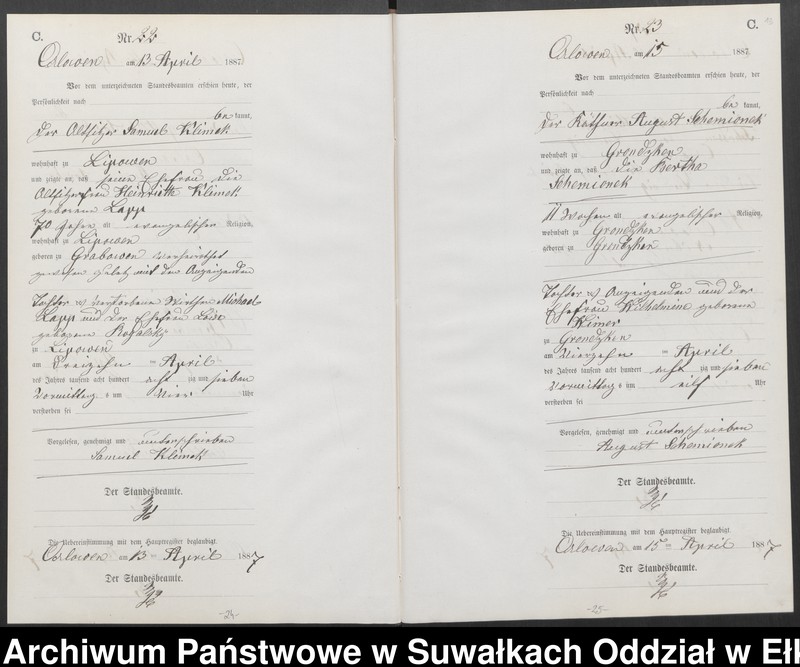 C.
Nr. 22
Orlowen am 13 April 1887
Vor dem unterzeichneten Standesbeamten erschien heute, der
Persönlichkeit nach
be kannt,
der Altsitzer Samuel Klimek
wohnhaft zu Lipowen
und zeigte an, daß seine Ehefrau die
Altsitzerfrau Heinriette Klimek
geborene Lapp
70 Jahre alt evangelischer Religion,
wohnhaft zu Lipowen
geboren zu Grabowen verheirathet
gewesen zuletzt mit dem Anzeigenden
Tochter des verstorbenen Wirthen Michael
Lapp und der Ehefrau Luise
geborene
zu Lipowen
am Dreizehn ten April
des Jahres tausend acht hundert acht zig und sieben
Vormittag s um Vier Uhr
verstorben sei
Vorgelesen, genehmigt und unterschrieben
Samuel Klimek
Der Standesbeamte.
Die Uebereinstimmung mit dem Hauptregister beglaubigt.
Orlowen am 13 ten April 1887
Der Standesbeamte.
-24-
Nr. 23
C.
Orlowen am 15 1887
Vor dem unterzeichneten Standesbeamten erschien heute, der
Persönlichkeit nach
be kannt,
der Käthner August Schemionek
wohnhaft zu Grondzken
und zeigte an, daß die Bertha
Schemionek
11 Wochen alt evangelischer Religion,
wohnhaft zu Grondzken
geboren zu Grondzken
Tochter des Anzeigenden und der
Ehefrau Wilhelmine geborene
zu Grondzken
am Vierzehn ten April
des Jahres tausend acht hundert acht zig und sieben
Vormittag s um elf Uhr
verstorben sei
Vorgelesen, genehmigt und unterschrieben
August Schemionek
Der Standesbeamte.
Die Uebereinstimmung mit dem Hauptregister beglaubigt.
Orlowen am 15 ten April 1887
Der Standesbeamte.
-25-
Archiwum Państwowe w Suwałkach Oddział w Eł